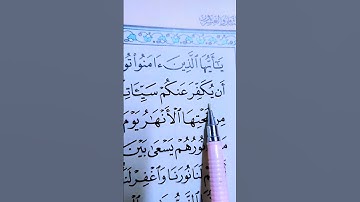 يَٰٓأَيُّهَا ٱلَّذِينَ ءَامَنُوا۟ تُو
أَن يُكَفِّرَ عَنكُمْ سَيِّـَٔاتِ
مِن تَحْتِهَا ٱلْأَنْهَٰرُ يَوْمَ
نُورُهُمْ يَسْعَىٰ بَيْنَ
لَنَا نُورَنَا وَٱغْفِرْ لَنَ